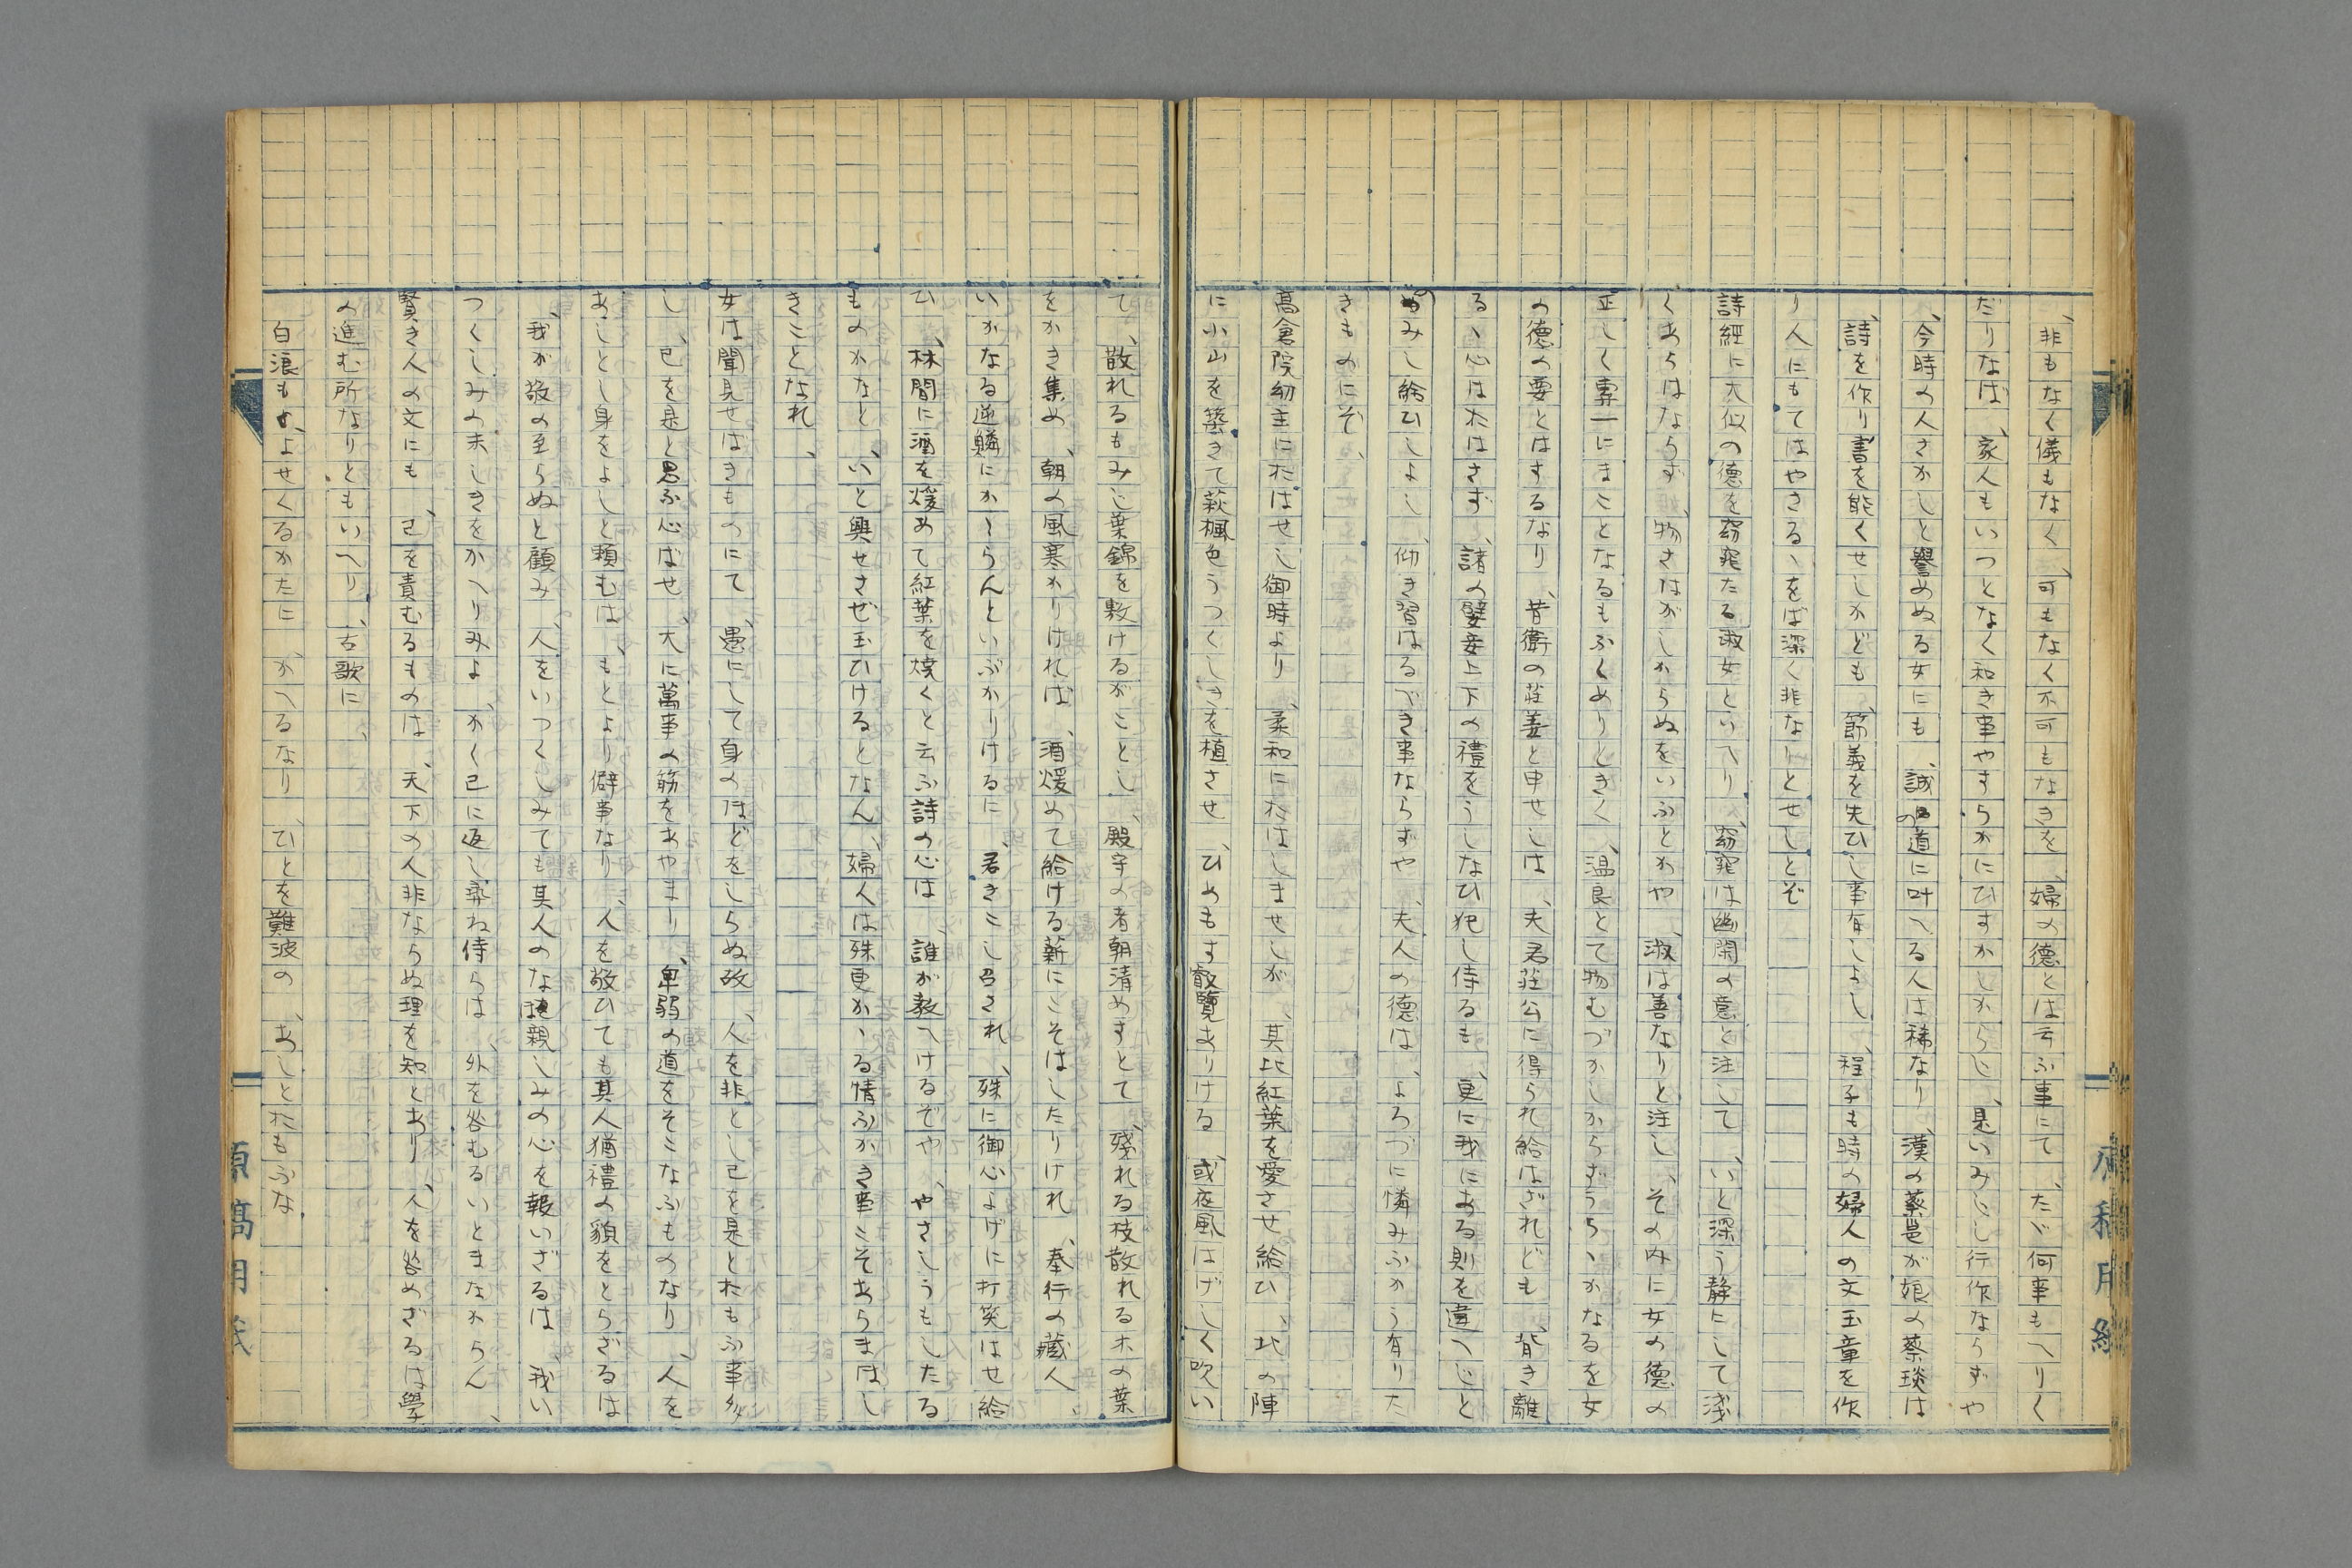 非もなく儀もなく、可もなく不可もなきを、婦の徳とは云ふ事にて、たゞ何事もへりく
だりなば、家人もいつとなく和き事やすらかにひすかしからじ、是いみじし行作ならずや
今時の人さかしと譽めぬる女にも、誠の道に叶へる人は稀なり、漢の蔡邕が娘の蔡琰は
詩を作り書を能くせしかども、節義を失ひし事有しよし、程子も時の婦人の文玉章を作
り人にもてはやさるゝをば深く非なりとせしとぞ
詩經に大似の徳を窈窕たる淑女といへり、窈窕は幽閑の意と注して、いと深う静にして淺
くあらはならず、物さはがしからぬをいふとかや、淑は善なりと注し、その内に女の徳の
正しく専一にまことなるもふくめりときく、温良とて物むづかしからずうらゝかなるを女
の徳の要とはするなり、昔衛の荘姜と申せしは、夫君荘公に得られ給はざれども、背き離
るゝ心はたはさず、諸の嬖妾上下の禮をうしなひ犯し侍るも、更に我にある則を違へじと
のみし給ひしよし、仰き習はるべき事ならずや、夫人の徳は、よろづに憐みふかう有りた
きものにぞ、
高倉院幼主にたはせし御時より、柔和にたはしませしが、其比紅葉を愛させ給ひ、北の陣
に小山を築きて萩楓色うつくしきを植させ、ひめもす叡覽ありける、或夜風はげしく吹い
て、散れるもみじ葉錦を敷けるがことし、殿守の者朝清めすとて、殘れる枝散れる木の葉
をかき集め、朝の風寒かりければ、酒煖めて給ける薪にこそはしたりけれ、奉行の藏人、
いかなる逆鱗にかゝらんといぶかりけるに、君きこし召され、殊に御心よげに打笑はせ給
ひ、林間に酒を煖めて紅葉を焼くと云ふ詩の心は、誰が教へけるぞや、やさしうもしたる
ものかなと、いと興せさせ玉ひけるとなん、婦人は殊更かゝる情ふかき事こそあらまほし
きことなれ、
女は聞見せはきものにて、愚にして身のほどをしらぬ故、人を非とし己を是とたもふ事多
し、己を是と思ふ心ばせ、大に萬事の筋をあやまり、卑弱の道をそこなふものなり、人を
あしとし身をよしと頼むは、もとより僻事なり、人を敬ひても其人猶禮の貌をとらざるは
我が敬の至らぬと顧み、人をいつくしみても其人のな親しみの心を報いざるは、我い
つくしみの未しきをかへりみよ、かく己に返し尋ね侍らは、外を咎むるいとまなからん、
賢き人の文にも、己を責むるものは、天下の人非ならぬ理を知とあり、人を咎めざるは學
の進む所なりともいへり、古歌に、
白浪もよせくるかたに、かへるなり、ひとを難波の、あしとたもふな
原稿用紙